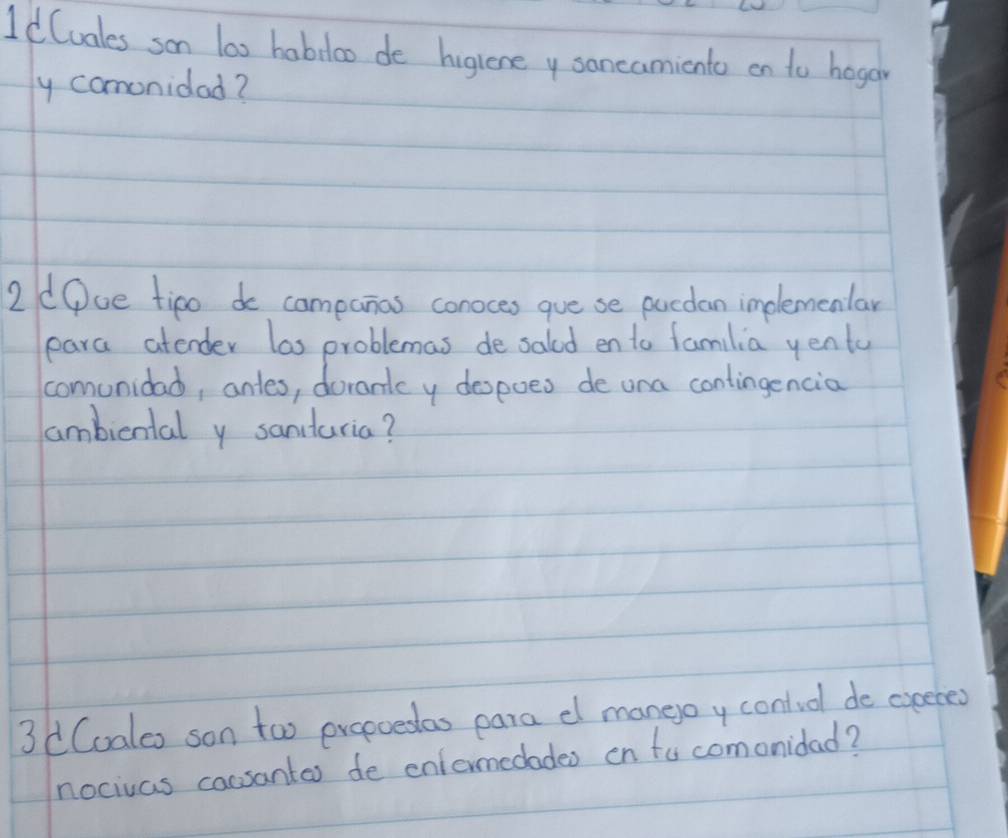 1 ¿Cuales son los habitos de higiene y saneamiento en tu hogar
y comunidad?
2 ¿Que tipo de campañas conoces que se puedan implementar
para atender los problemas de salud en tu familia y en tu
comunidad, antes, durante y despues de una contingencia
ambiental y sanitaria?
3 ¿Cuales son tus propuestas para el manejo y control de especies
nocivas causantes de enfermedades en tu comunidad?